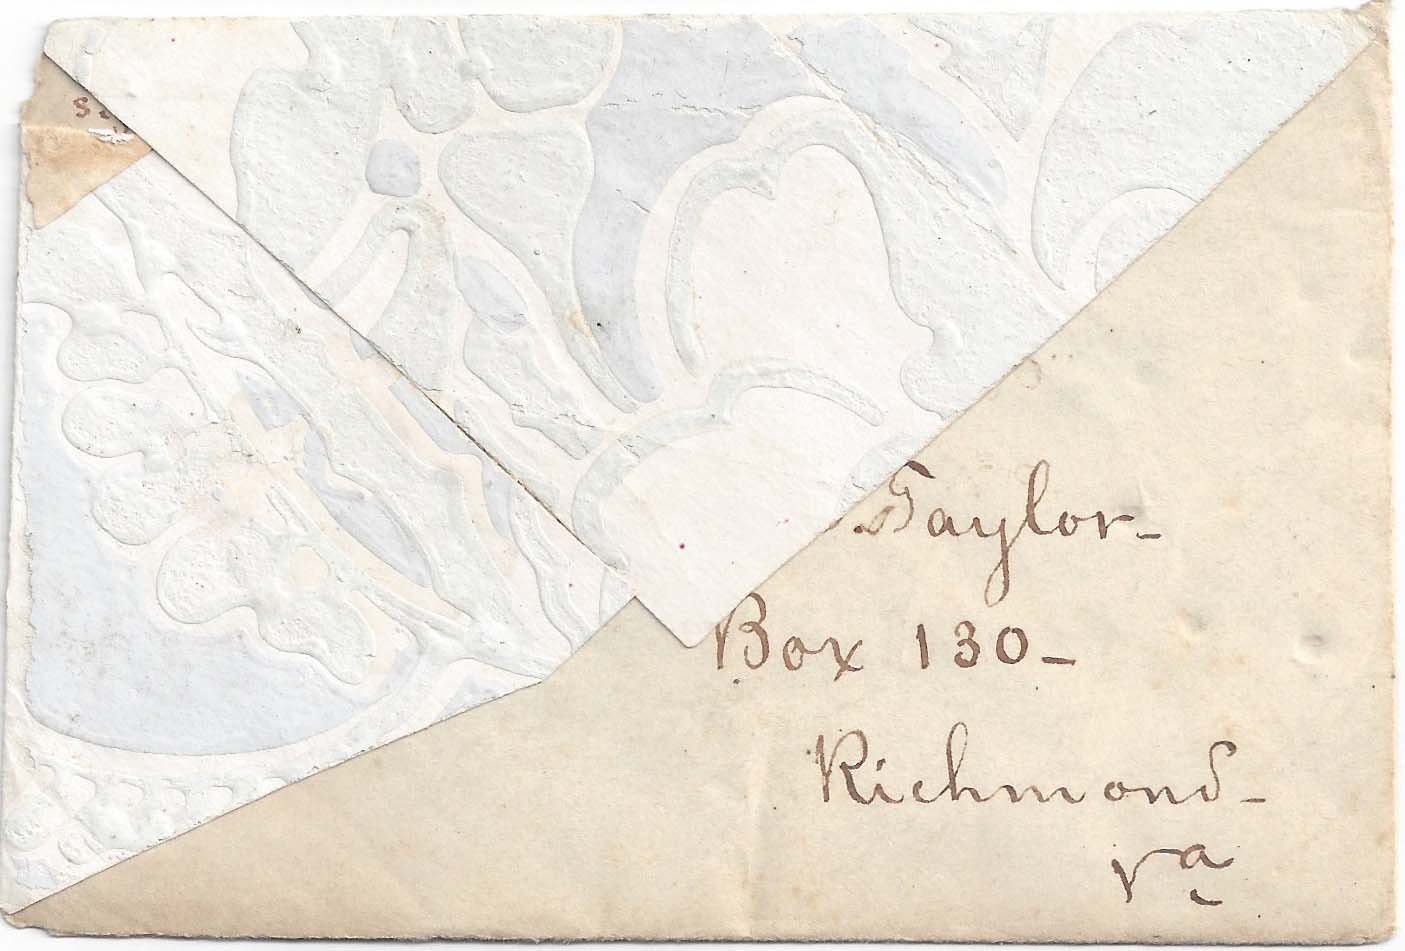 Taylor-
Box 130-
Richmond-
Va